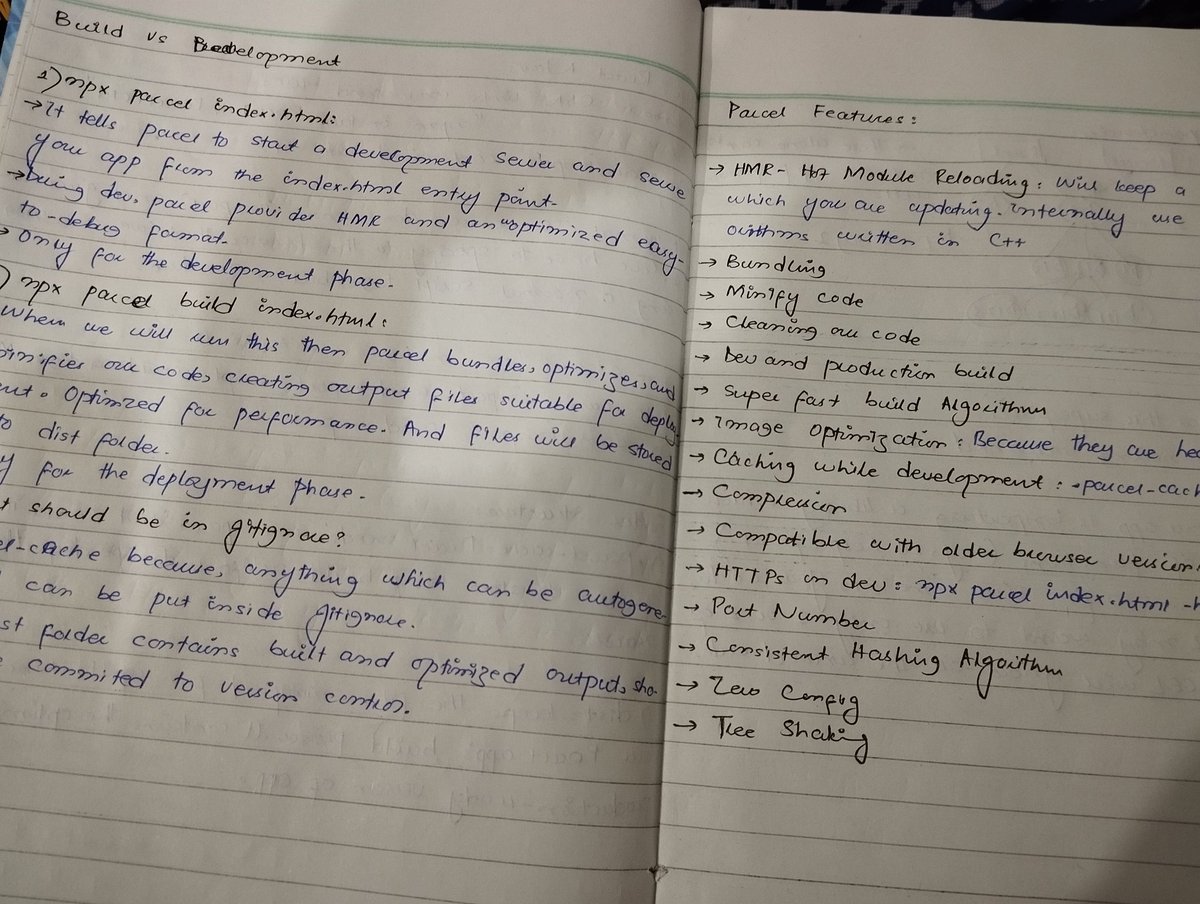 Build vs Development
1) npx parcel index.html:
→ It tells parcel to start a development server and serve
your app from the index.html entry point.
→ During dev, parcel provides HMR and an "optimized easy-
to-debug format.
→ Only for the development phase.
) npx parcel build index.html:
When we will run this then parcel bundles, optimizes, and
minifies our code, creating output files suitable for deploy
ent. Optimized for performance. And files will be stored
to dist folder.
y for the deployment phase.
t should be in gitignore?
el-cache because, anything which can be autogene-
can be put inside gitignore.
st folder contains built and optimized outputs, sho-
commited to version control.
Parcel Features:
→ HMR - Hot Module Reloading: Will keep a
which you are updating. Internally use
orithms written in C++
→ Bundling
→ Minify code
→ Cleaning our code
→ Dev and production build
→ Super fast build Algorithm
→ Image Optimization: Because they are hea
→ Caching while development: .parcel-cach
→ Compression
→ Compatible with older browser version
→ HTTPs on dev: npx parcel index.html -h
→ Port Number
→ Consistent Hashing Algorithm
→ Zero Config
→ Tree Shaking